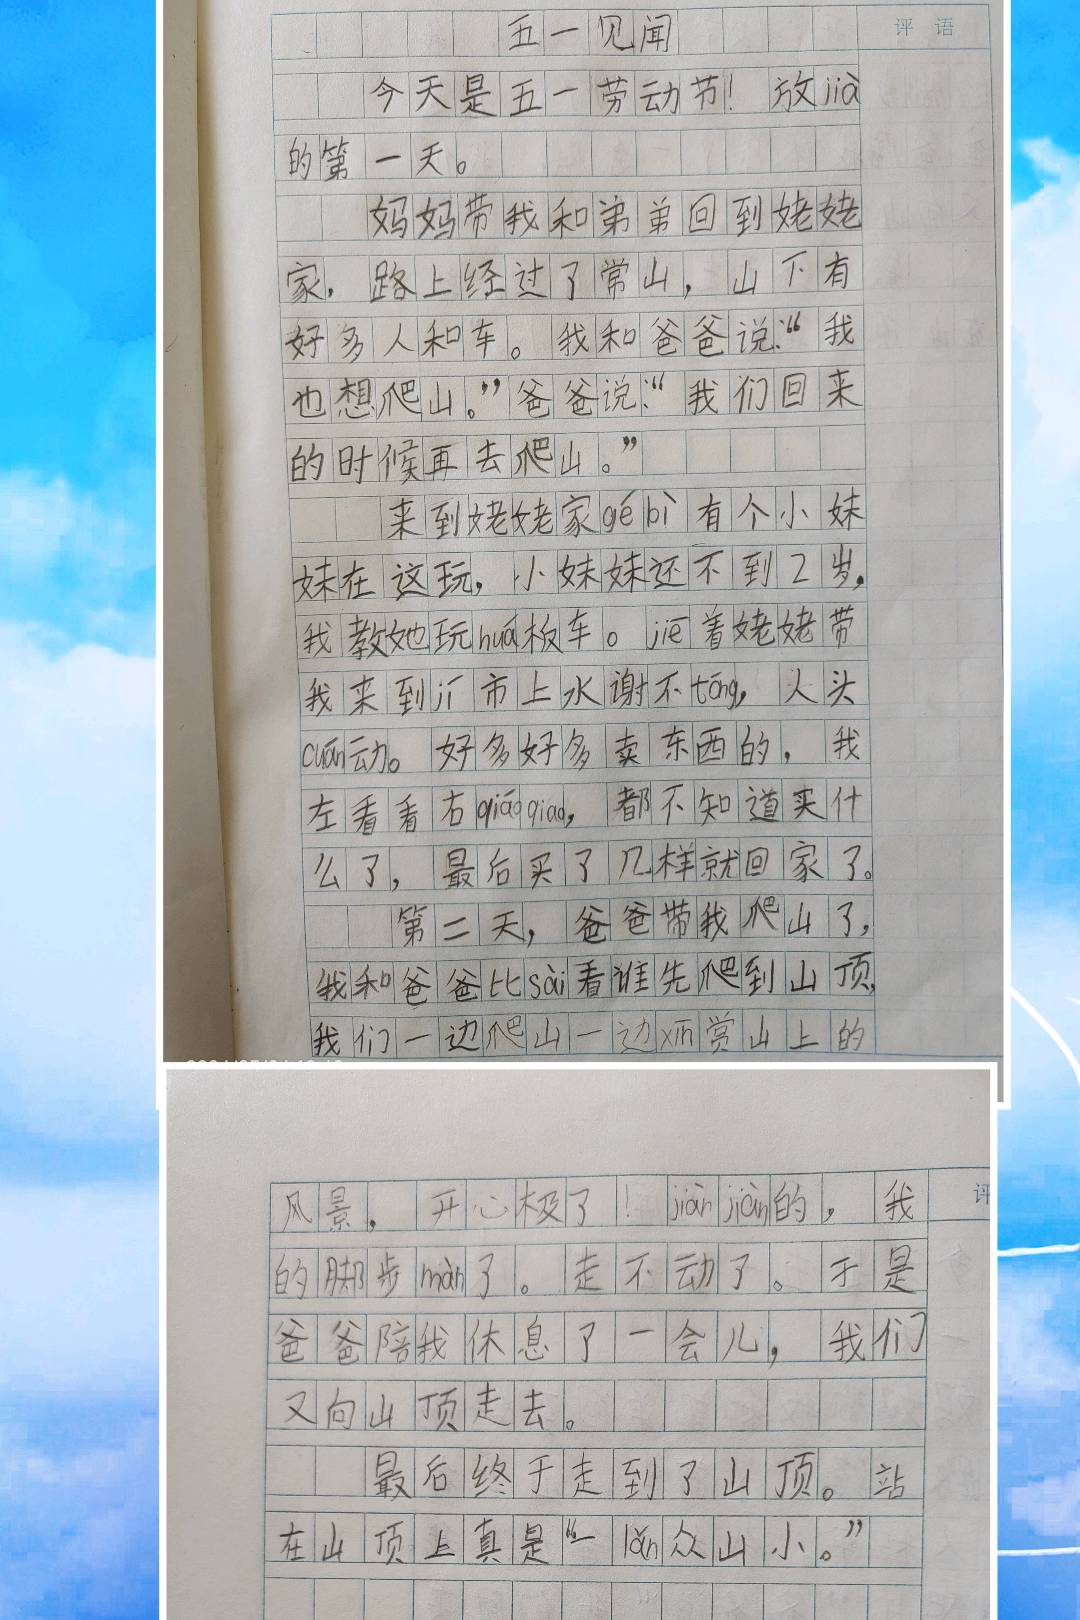 五一见闻
评语
今天是五一劳动节！放jià
的第一天。
妈妈带我和弟弟回到姥姥
家，路上经过了常山，山下有
好多人和车。我和爸爸说：“我
也想爬山。”爸爸说：“我们回来
的时候再去爬山。”
来到姥姥家gé bì有个小妹
妹在这玩，小妹妹还不到2岁，
我教她玩huá板车。jiē着姥姥带
我来到jí市上水谢不tōng，人头
cuán动。好多好多卖东西的，我
左看看右qiáoqiao，都不知道买什
么了，最后买了几样就回家了。
第二天，爸爸带我爬山了，
我和爸爸比sài看谁先爬到山顶，
我们一边爬山一边xīn赏山上的
风景，开心极了！jiàn jiàn的，我
的脚步màn了。走不动了。于是
爸爸陪我休息了一会儿，我们
又向山顶走去。
最后终于走到了山顶。站
在山顶上真是“一lǎn众山小。”